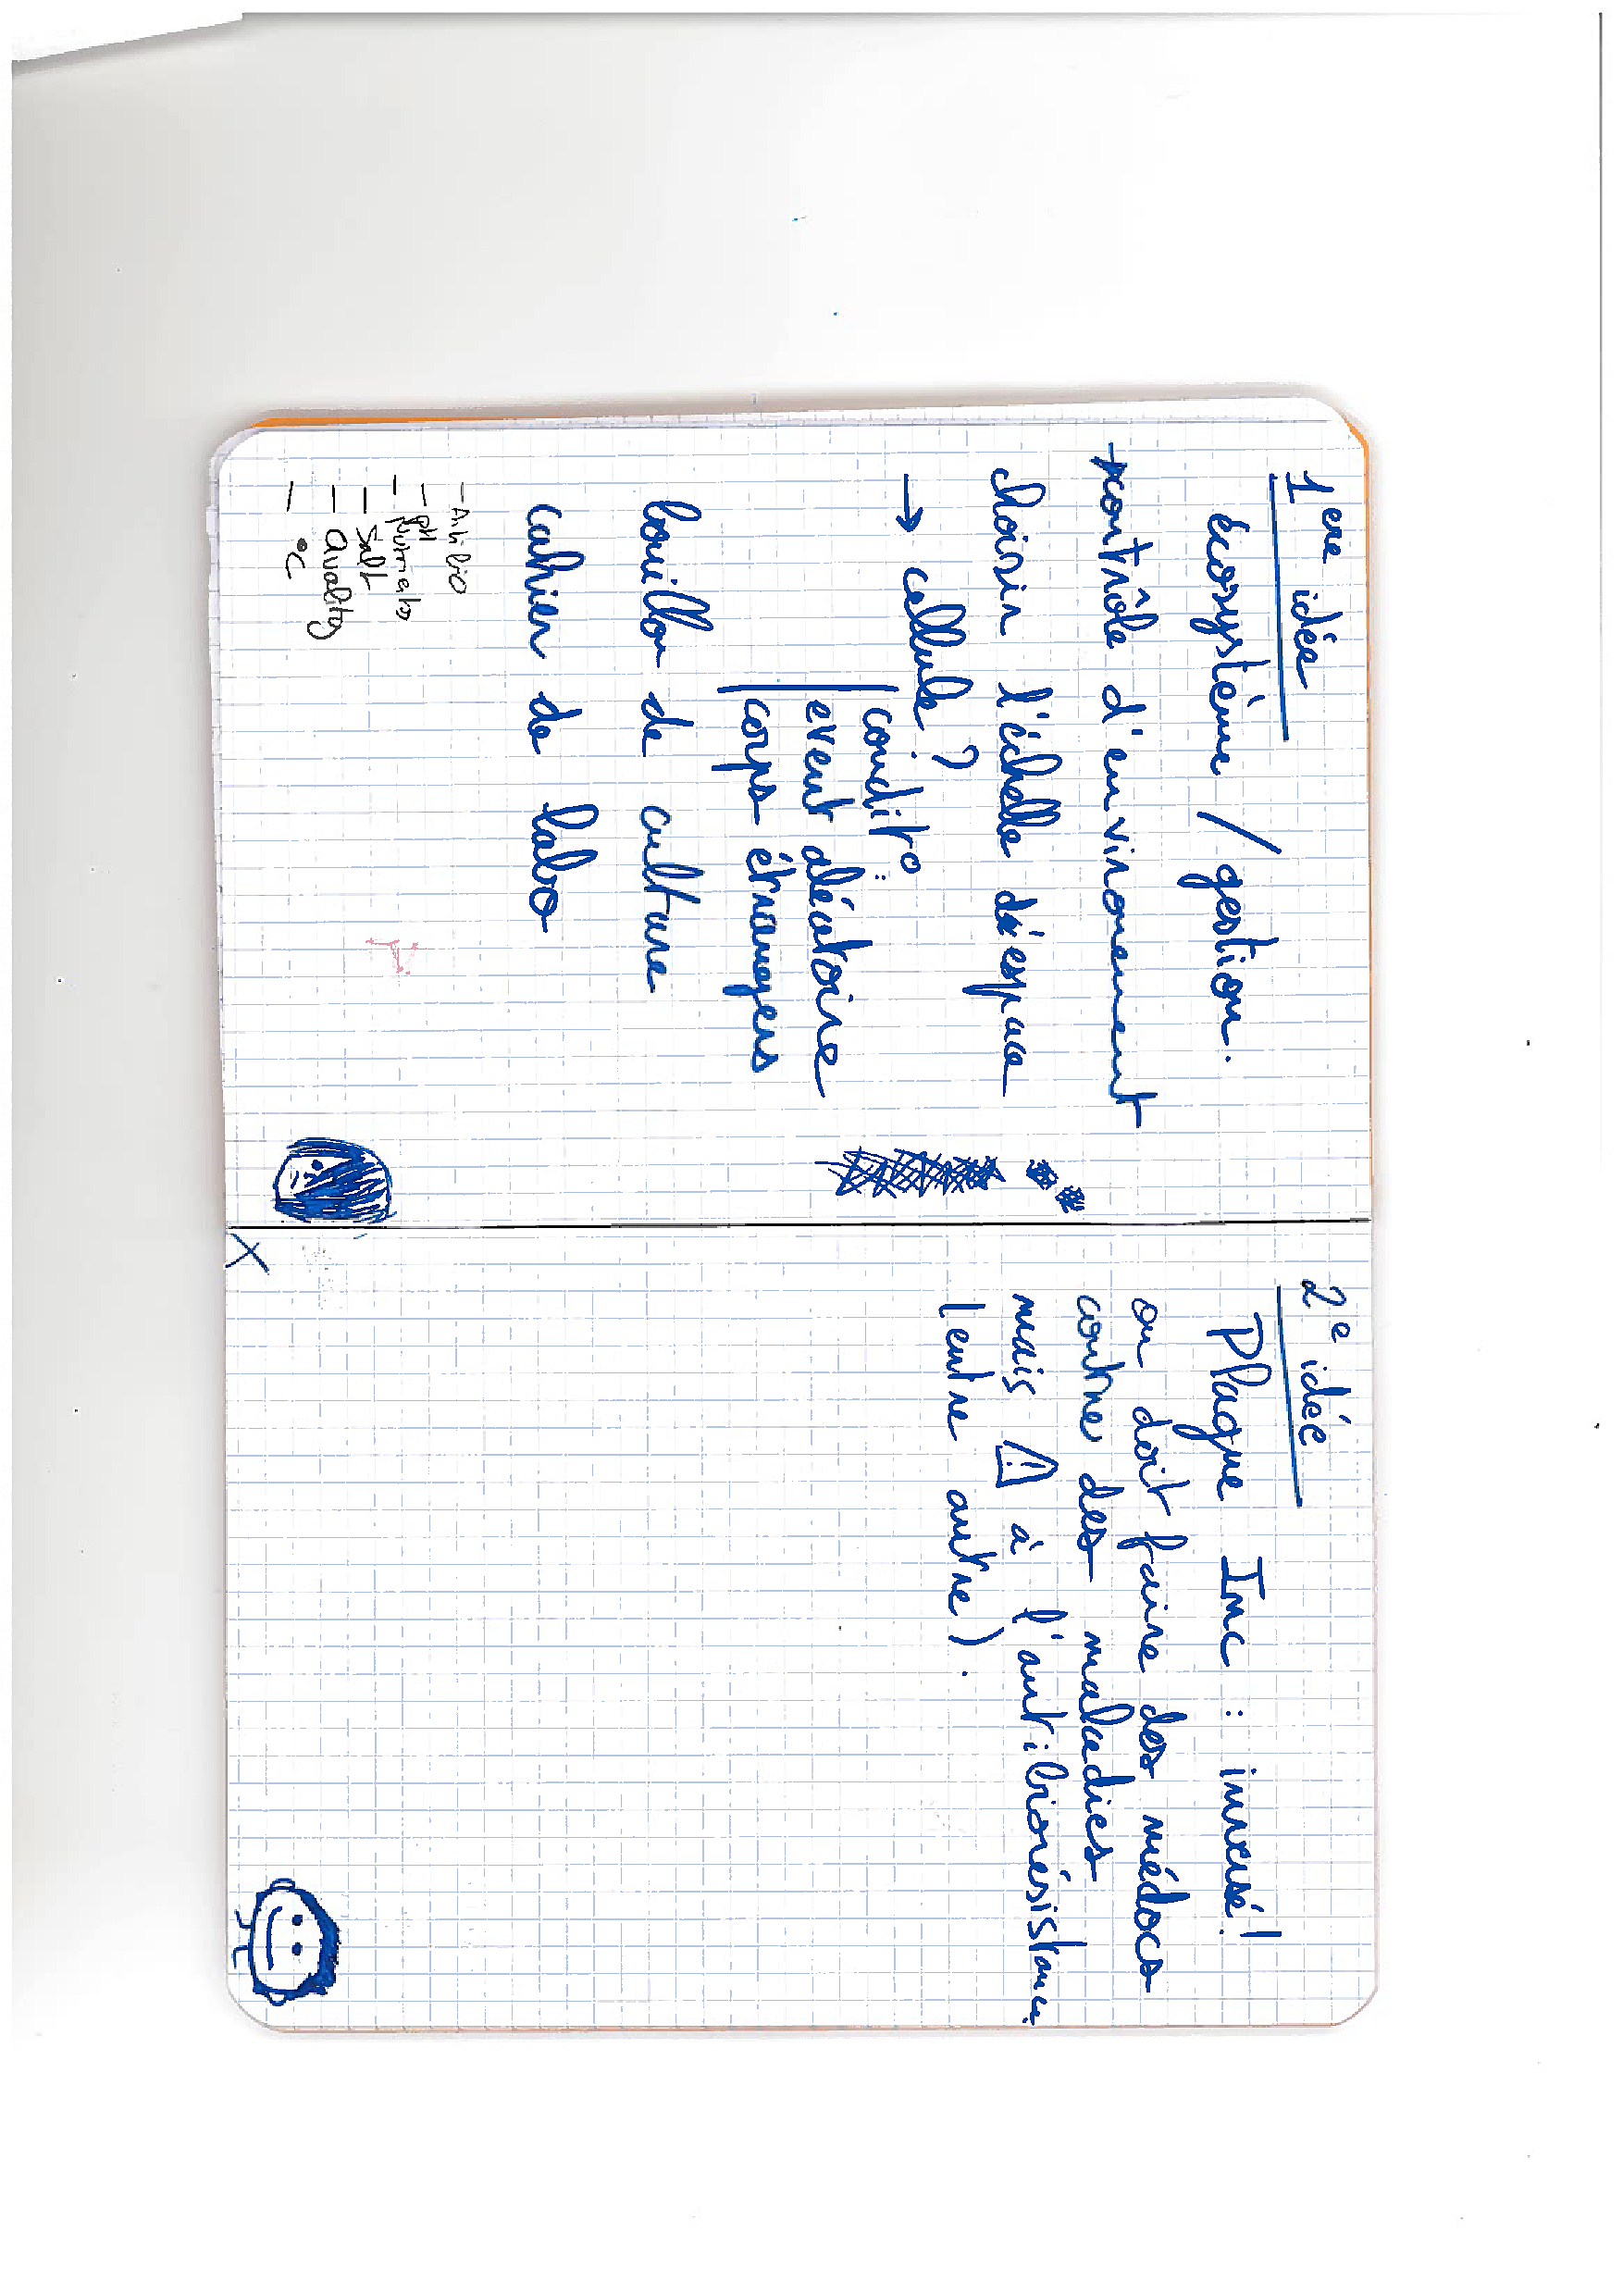 1ere idée
écosystème / gestion.
→ contrôle d'environnement
choisir l'échelle d'espace
→ cellule ?
condit°:
event aléatoire
corps étrangers
bouillon de culture
cahier de labo
- Antibio
- pH
- Salt
- Quality
- °C
2e idée
Plague Inc : inversé !
on doit faire des médocs
contre des maladies
mais ⚠ à l'antibiorésistance
(entre autre).
X